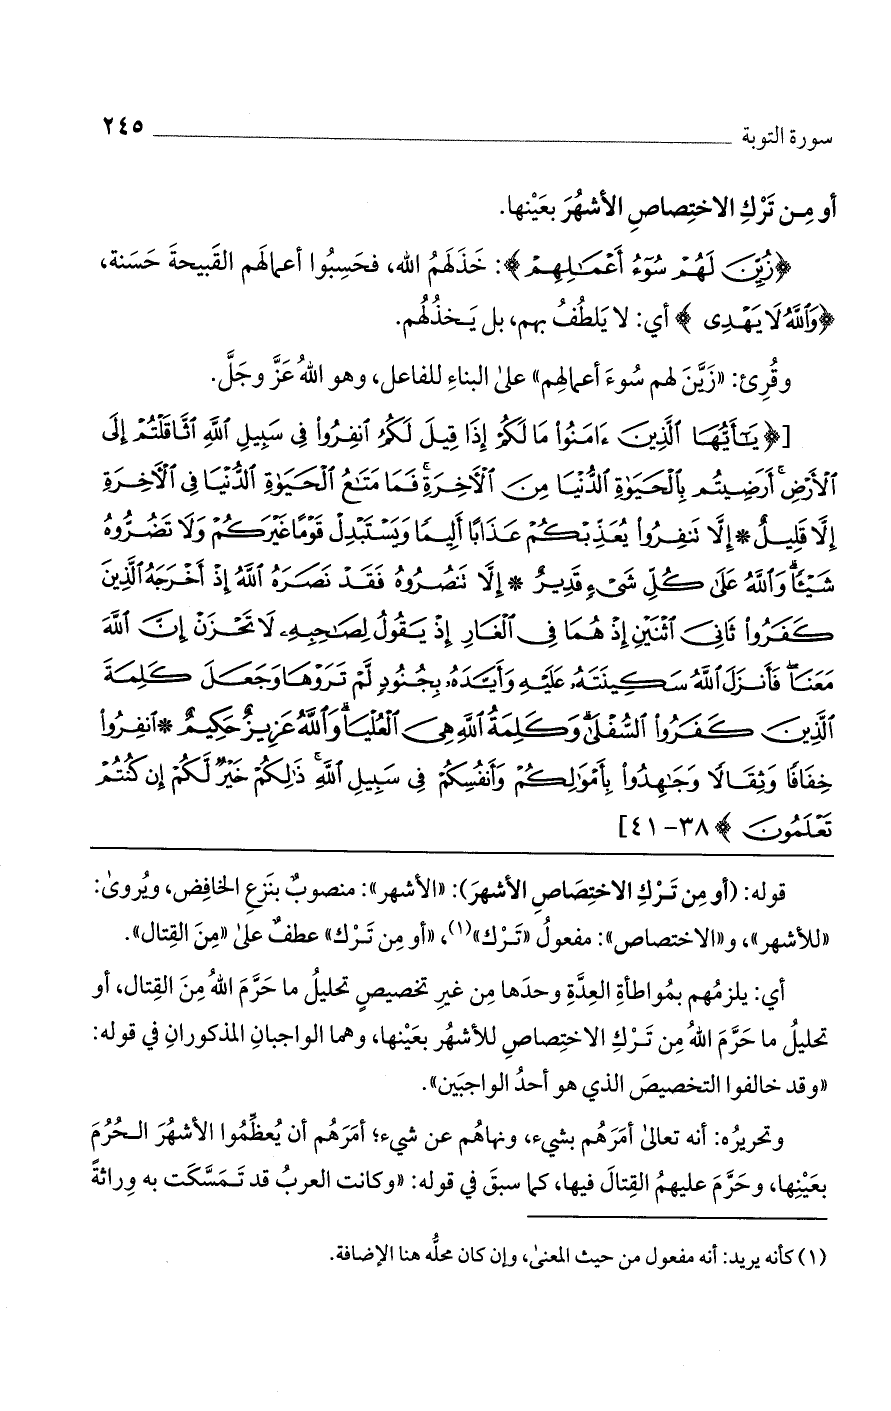 سورة التوبة ــــــــــــــــــــ ٢٤٥
أو مِـن تَرْكِ الاختِصاصِ الأشهُرَ بعَيْنها.
﴿زُيِّنَ لَهُمْ سُوٓءُ أَعْمَٰلِهِمْ﴾: خَذَلَهُمُ الله، فحَسِبُوا أعمالَهم القَبيحةَ حَسَنة،
﴿وَٱللَّهُ لَا يَهْدِى﴾ أي: لا يَلطُفُ بهم، بل يَـخذُلُهُم.
وقُرِئ: «زَيَّنَ لهم سُوءَ أعمالِهم» علىٰ البناءِ للفاعل، وهو اللهُ عَزَّ وجَلَّ.
[﴿يَٰٓأَيُّهَا ٱلَّذِينَ ءَامَنُوا۟ مَا لَكُمْ إِذَا قِيلَ لَكُمُ ٱنفِرُوا۟ فِى سَبِيلِ ٱللَّهِ ٱثَّاقَلْتُمْ إِلَى
ٱلْأَرْضِ ۚ أَرَضِيتُم بِٱلْحَيَوٰةِ ٱلدُّنْيَا مِنَ ٱلْأَخِرَةِ ۚ فَمَا مَتَٰعُ ٱلْحَيَوٰةِ ٱلدُّنْيَا فِى ٱلْأَخِرَةِ
إِلَّا قَلِيلٌ * إِلَّا تَنفِرُوا۟ يُعَذِّبْكُمْ عَذَابًا أَلِيمًا وَيَسْتَبْدِلْ قَوْمًا غَيْرَكُمْ وَلَا تَضُرُّوهُ
شَيْـًٔا ۗ وَٱللَّهُ عَلَىٰ كُلِّ شَىْءٍ قَدِيرٌ * إِلَّا تَنصُرُوهُ فَقَدْ نَصَرَهُ ٱللَّهُ إِذْ أَخْرَجَهُ ٱلَّذِينَ
كَفَرُوا۟ ثَانِىَ ٱثْنَيْنِ إِذْ هُمَا فِى ٱلْغَارِ إِذْ يَقُولُ لِصَٰحِبِهِۦ لَا تَحْزَنْ إِنَّ ٱللَّهَ
مَعَنَا ۖ فَأَنزَلَ ٱللَّهُ سَكِينَتَهُۥ عَلَيْهِ وَأَيَّدَهُۥ بِجُنُودٍ لَّمْ تَرَوْهَا وَجَعَلَ كَلِمَةَ
ٱلَّذِينَ كَفَرُوا۟ ٱلسُّفْلَىٰ ۗ وَكَلِمَةُ ٱللَّهِ هِىَ ٱلْعُلْيَا ۗ وَٱللَّهُ عَزِيزٌ حَكِيمٌ * ٱنفِرُوا۟
خِفَافًا وَثِقَالًا وَجَٰهِدُوا۟ بِأَمْوَٰلِكُمْ وَأَنفُسِكُمْ فِى سَبِيلِ ٱللَّهِ ۚ ذَٰلِكُمْ خَيْرٌ لَّكُمْ إِن كُنتُمْ
تَعْلَمُونَ﴾ ٣٨-٤١]
قوله: (أو مِن تَـرْكِ الاختِصَاصِ الأشهرَ): «الأشهر»: منصوبٌ بنَزعِ الخافِض، ويُروىٰ:
«للأشهر»، و«الاختصاص»: مفعولُ «تَـرْك»(١)، «أو مِن تَـرْك» عطفٌ علىٰ «مِنَ القِتال».
أي: يلزمُهم بمُواطأةِ العِدَّةِ وحدَها مِن غيرِ تخصيصٍ تحليلُ ما حَرَّمَ اللهُ مِنَ القِتال، أو
تحليلُ ما حَرَّمَ اللهُ مِن تَـرْكِ الاختِصاصِ للأشهُر بعَيْنها، وهما الواجبانِ المذكورانِ في قوله:
«وقد خالفوا التخصيصَ الذي هو أحدُ الواجبَين».
وتحريرُه: أنه تعالىٰ أمَرَهُم بشيء، ونهاهُم عن شيء؛ أمَرَهُم أن يُعظِّمُوا الأشهُرَ الـحُرُمَ
بعَيْنِها، وحَرَّمَ عليهمُ القِتالَ فيها، كما سبقَ في قوله: «وكانت العربُ قد تَـمَسَّكَت به وِراثةً
(١) كأنه يريد: أنه مفعول من حيث المعنىٰ، وإن كان محلُّه هنا الإضافة.